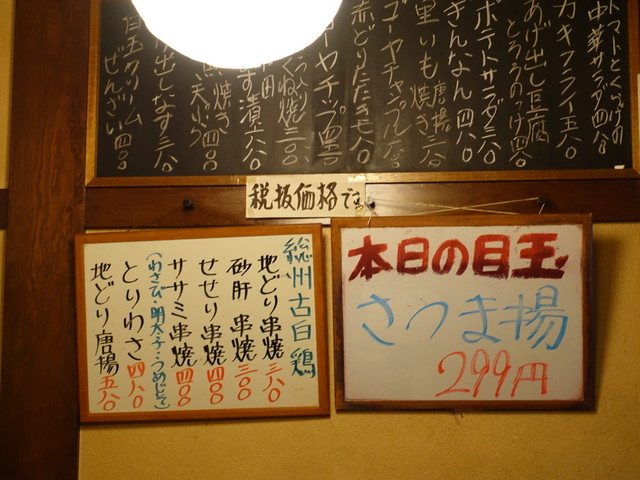 トマトとくらげの
中華サラダ四八〇
カキフライ五八〇
あげ出し豆腐
とろろのっけ四八〇
ポテトサラダ三八〇
ぎんなん 四八〇
里いも唐揚
焼き 三八〇
ゴーヤチャンプル
赤どりたたき七八〇
ゴーヤチップ四
くね焼 三〇〇
なす漬 六八〇
焼き
天ぷら 四
出しなす 三八〇
白玉クリーム
ぜんざい 四
税抜価格です。
総州古白鶏
地どり串焼 三八〇
砂肝 串焼 三〇〇
せせり串焼 四〇〇
ササミ串焼 四〇〇
(わさび・明太子・うめじそ)
とりわさ 四八〇
地どり唐揚 五八〇
本日の目玉
さつま揚
299円